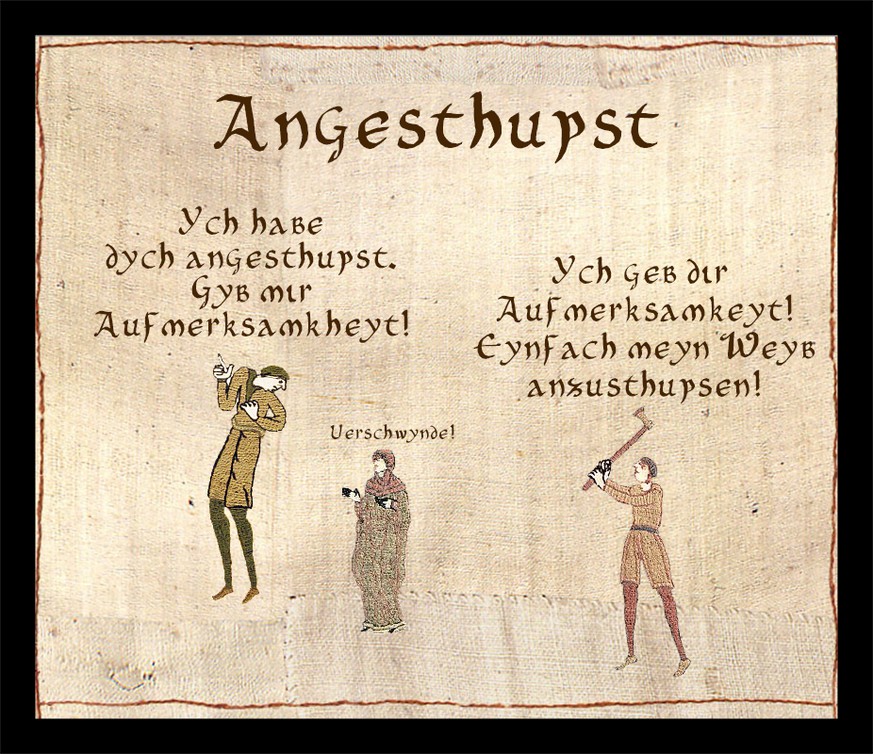 Angesthupst
Ych habe
dych angesthupst.
Gyb mir
Aufmerksamkheyt!
Verschwynde!
Ych geb dir
Aufmerksamkeyt!
Eynfach meyn Weyb
anzusthupsen!